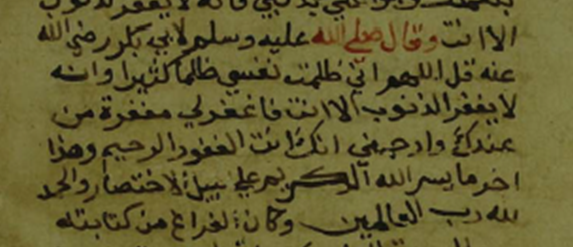 فانه لا يغفر الذنوب
الا انت وقال صلى الله عليه وسلم لابي بكر رضي الله
عنه قل اللهم اني ظلمت نفسي ظلما كثيرا وانه
لا يغفر الذنوب الا انت فاغفر لي مغفرة من
عندك وارحمني انك انت الغفور الرحيم وهذا
اخر ما يسر الله الكريم على سبيل الاختصار والحمد
لله رب العالمين وكان الفراغ من كتابته